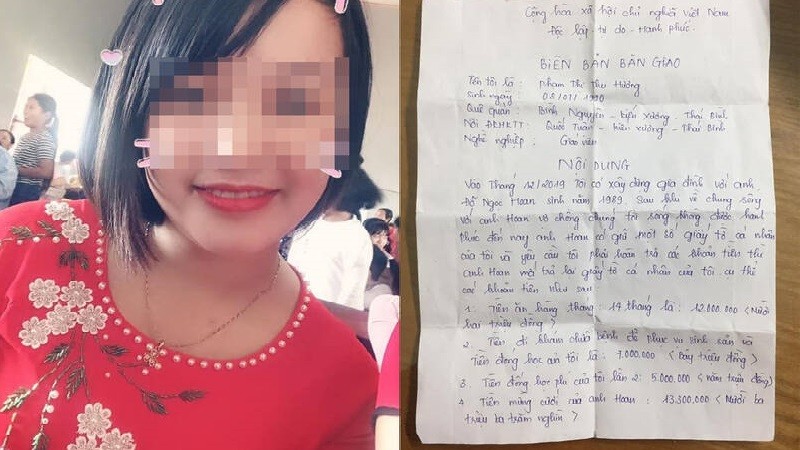 Cộng hòa xã hội chủ nghĩa Việt Nam
Độc lập - tự do - Hạnh phúc
BIÊN BẢN BÀN GIAO
Tên tôi là : Phạm Thị Thu Hường
Sinh ngày : 05/01/1990
Quê quán : Bình Nguyên - Kiến Xương - Thái Bình
Nơi ĐKHKTT : Quốc Tuấn - Kiến Xương - Thái Bình
Nghề nghiệp : Giáo viên
NỘI DUNG
Vào Tháng 12/2019 Tôi có xây dựng gia đình với anh
Đỗ Ngọc Hoan sinh năm 1989. Sau khi về chung sống
với anh Hoan vợ chồng chúng tôi sống không được hạnh
phúc đến nay anh Hoan có giữ một số giấy tờ cá nhân
của tôi và yêu cầu tôi phải hoàn trả các khoản tiền thì
anh Hoan mới trả lại giấy tờ cá nhân của tôi cụ thể
các khoản tiền như sau
1. Tiền ăn hàng tháng : 14 tháng là : 12.000.000 < Mười
hai triệu đồng >
2. Tiền đi khám chữa bệnh để phục vụ sinh sản và
Tiền đóng học của tôi là : 7.000.000 < bảy triệu đồng >
3 Tiền đóng học phí của tôi lần 2 : 5.000.000 < năm triệu đồng >
4 Tiền mừng cưới của anh Hoan : 13.300.000 < Mười ba
triệu ba trăm nghìn >